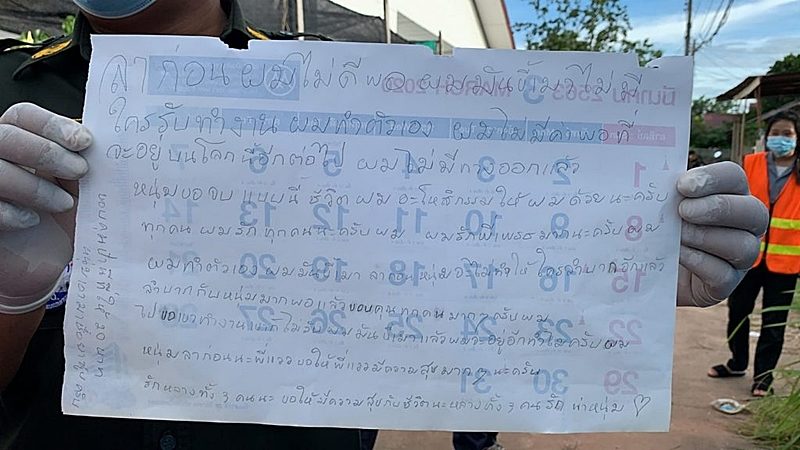 ลาก่อนผมไม่ดีพอ ผมมันขี้เมาไม่มี
ใครรับทำงาน ผมทำตัวเอง ผมไม่มีค่าพอที่
จะอยู่บนโลกนี้อีกต่อไป ผมไม่มีทางออกแล้ว
หนุ่มขอจบแบบนี้ ชีวิตผม อะโหสิกรรมให้ผมด้วยนะครับ
ทุกคน ผมรักทุกคนนะครับผม ผมรักพี่เพรชมากนะครับผม
ผมทำตัวเอง ผมมันขี้เมา ลาก่อนหนุ่มจะไม่ทำให้ใครลำบากอีกแล้ว
ลำบากกับหนุ่มมากพอแล้วขอบคุณทุกคนมากๆครับผม
ไปขอเขาทำงานเขาก็ไม่รับผมมันขี้เมาแล้วผมจะอยู่อีกทำไมครับผม
หนุ่มลาก่อนนะพี่แววขอให้พี่แววมีความสุขมากๆนะครับ
รักหลานทั้ง 3 คนนะ ขอให้มีความสุขกับชีวิตนะหลานทั้ง 3 คน รัก น้าหนุ่ม ♡
ขอบคุณ 20 บาท
มีนาคม 2563
3
1 2 3 4 5 6 7
8 9 10 11 12 13 14
15 16 17 18 19 20
22 23 24 25 26
29 30 31